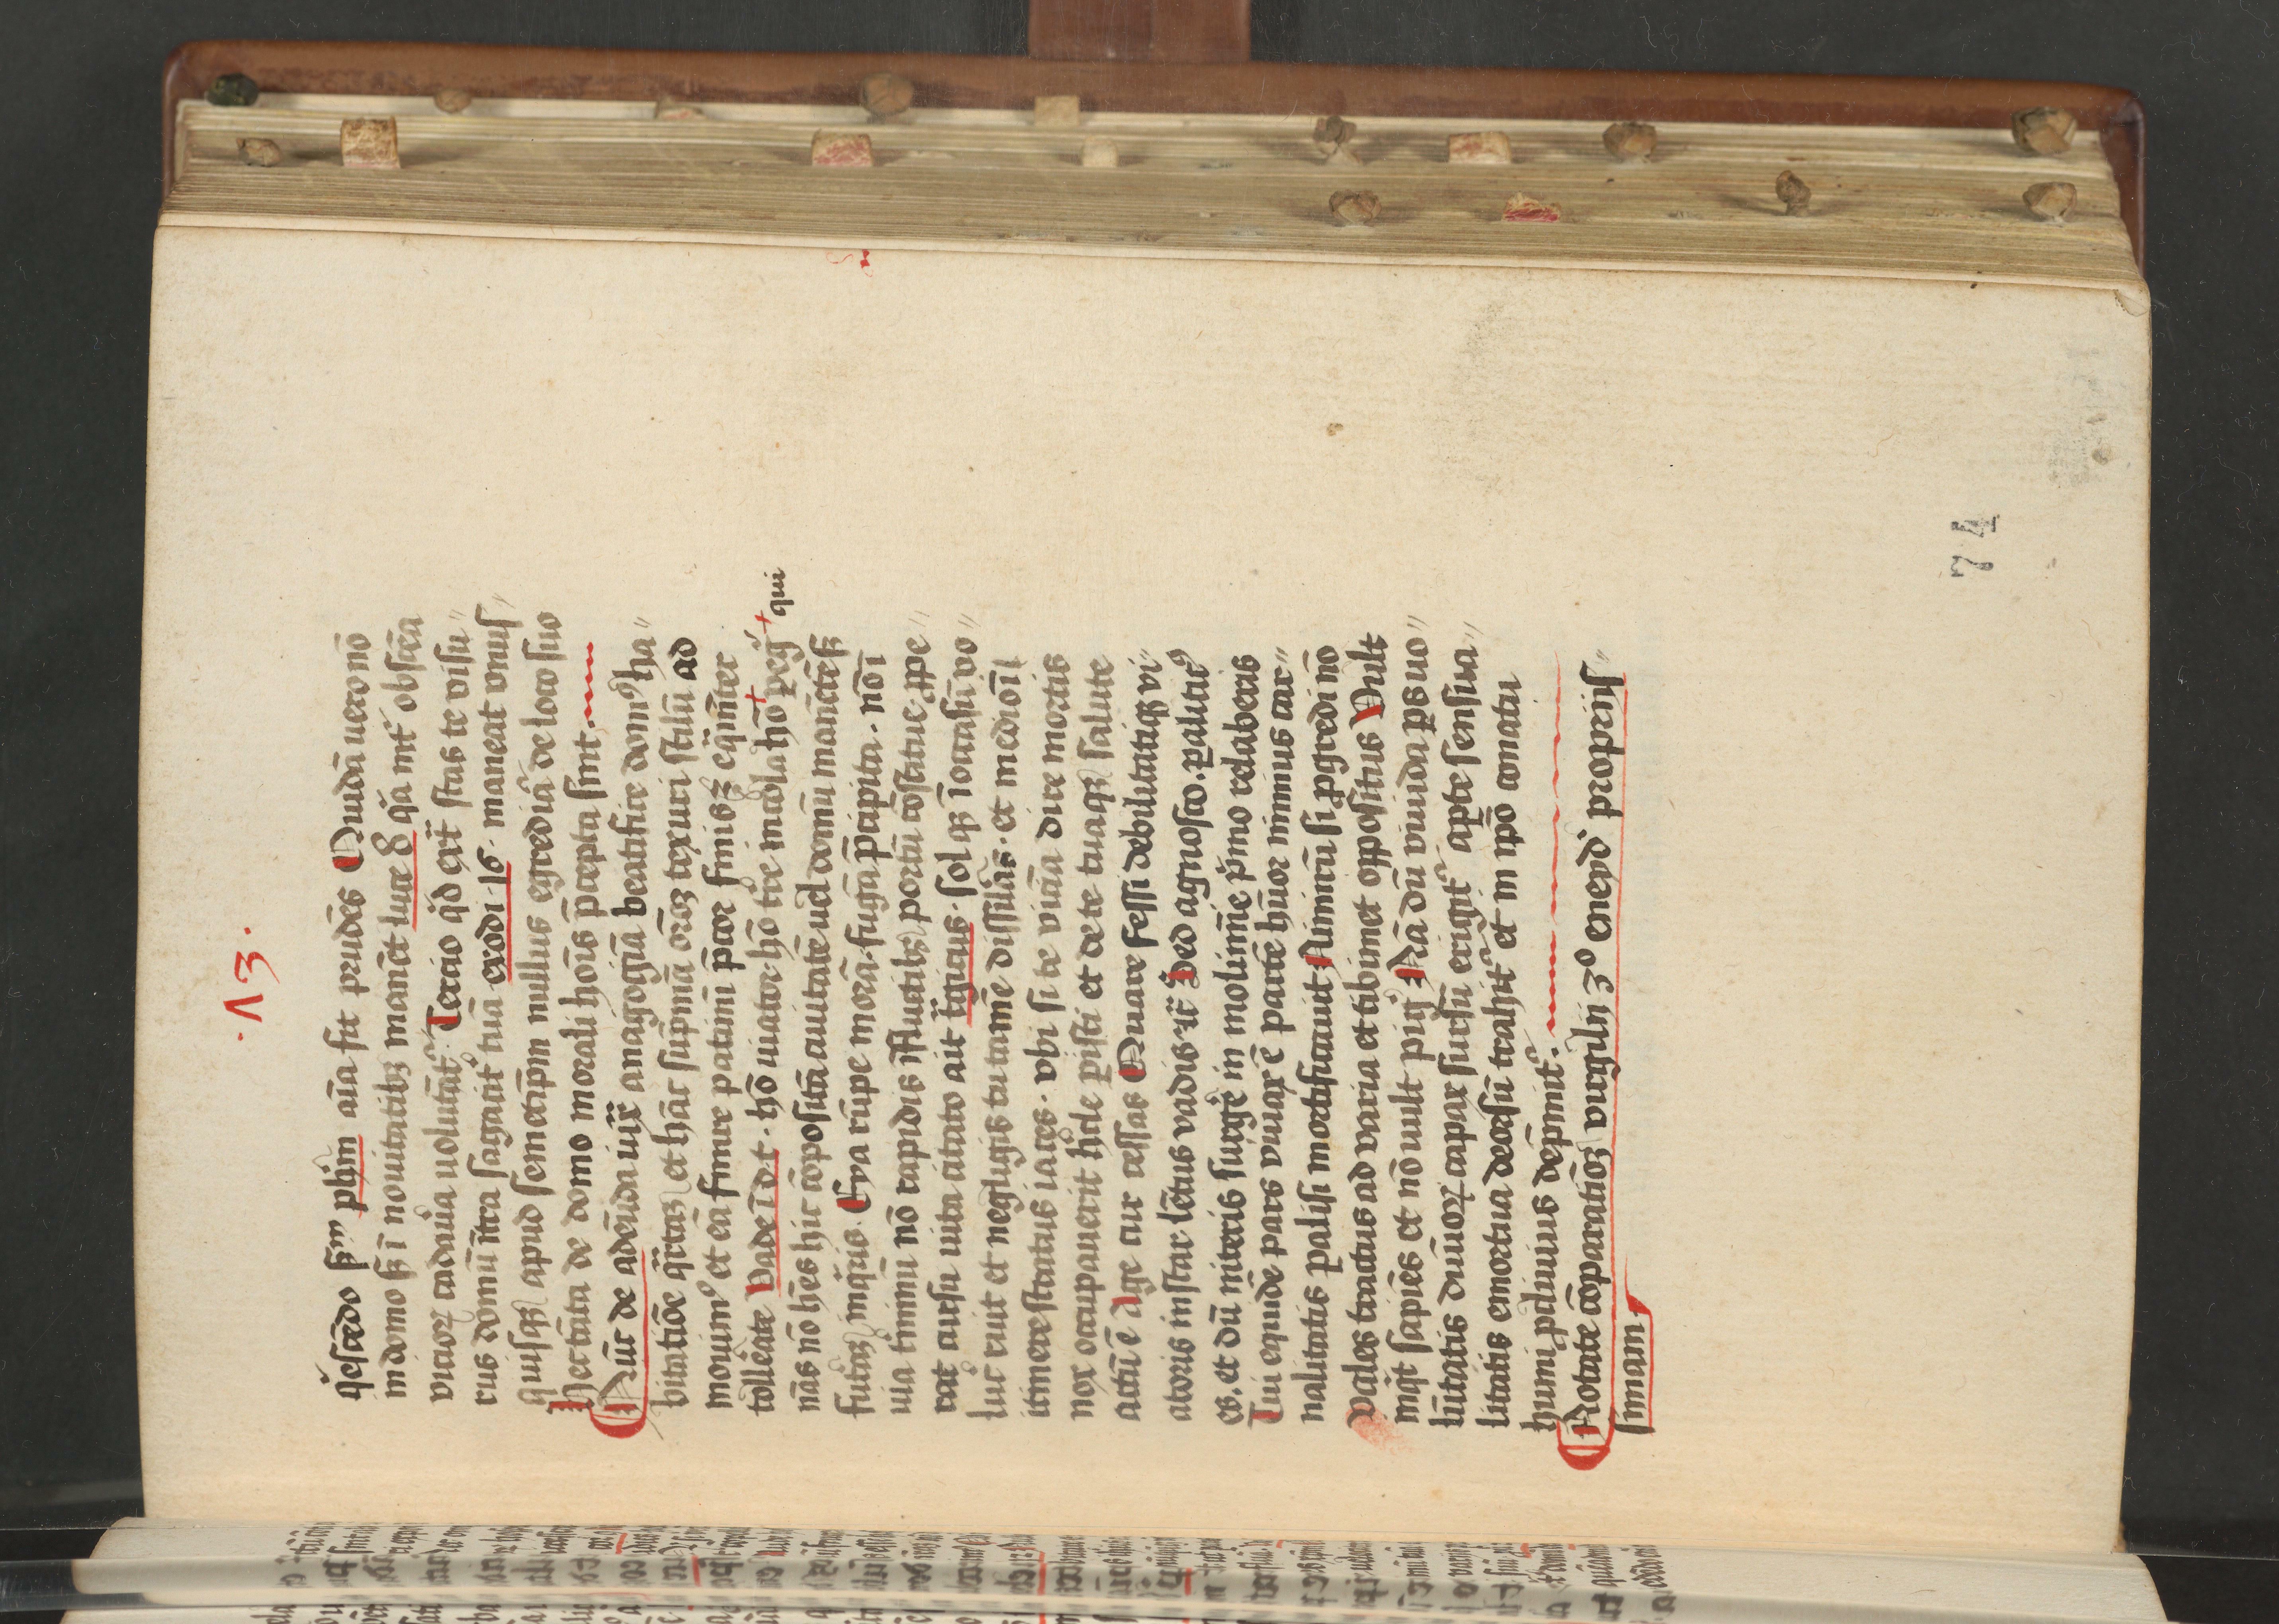 .13.
q̄esce̅do ẜm pħm ai̅a fit prude̅s Quida̅ uero no̅
in domo ẜ i̅ nouitatibꝫ mane̅t luce 8 qa̅ mt̅ obsce̅a
uicioꝝ cadau̅a uolut̅at᷑ Tercio qd̅ ex̅t stas te visu〃
rus domu̅ i̅tra sagacit᷑ tua̅ exodi .16. maneat vnus〃
quisqꝫ apud semetip̅m nullus egredia᷑ de loco suo
Hec ta̅ta de domo morali ho̅is p̅cepta sint.
Nu̅c de ade̅nda iux̅ anagogia̅ beatifice domꝰ ha〃
bitatio̅e q̅rtaꝫ et ha̅c sup̅ma̅ or̅oꝫ texuri stilu̅ ad
mouimꝰ et ea̅ finire patimi̅ p̅cor finisꝫ eq̅nit̅er
tolle̅ate Vade i̅ dt̅. ho̅ uiator. ho̅ t̅re incola ho̅ peg̅ + qui
na̅s no̅ he̅s hic co̅posita̅ ciuitate̅ uel domu̅ mane̅te̅ ẜꝫ
futur̅aꝫ inq̅ris. Eya ru̅pe mora̅. fuga̅ p̅cipita. no̅ i̅
uia t̅nimu̅ no̅ rapidis i̅fluctibꝫ portu̅ co̅stitue ꝓpe〃
rat cursu uita citato ait t̅gicus. sol qꝫ i̅ occasu̅ vo〃
luc̅ ruit et negligis tu tame̅ dissilas̅. et medio i̅
itinere stratus iaces. vbi si te vita̅ dire mortis
nox occupauerit hcl̅e p̱isti et de te tuaqꝫ salute
actu̅ e̅ Age cur cessas Quare fessi debilitatiqꝫ vi〃
atoris instar le̅tus vadis rn̅ Sed agnosco. palitatꝰ
es. et du̅ niteris surge̅ in molimi̅e p̅mo relaberis
Tui equide̅ pars viuax e̅ parte̅ hu̅ior nimius car〃
nalitatis palisi mortificauit Nimiru̅ si ꝓgredi no̅
vales tractus ad varia et tibimet oppositus Vult
inqt̅ sapie̅s et no̅ uult pigꝰ Na̅ du̅ viuida p̱s uo〃
lu̅tatis diuinoꝝ capax sursu̅ erigit᷑ apte sensua〃
litatis emortua deorsu̅ trahit᷑ et in ip̅o conatu
humi p̱diuius dep̅mit᷑.
Notate co̅paratioꝫ virgilij 3º eneyd̅ propriis〃
simam
74